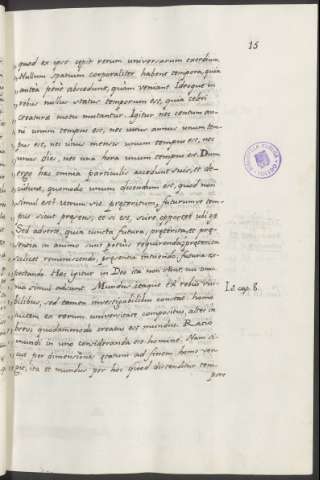 15
quod ex ipso cepit rerum universarum exordium
Nullum spatium corporaliter habent tempora, quia
antea penè abscedunt, quam veniant. Ideoque in
rebus nullus status temporum est, quia celeri
creaturæ motu mutantur. Igitur nec centum an-
ni unum tempus est, nec unus annus unum tem-
pus est, nec unus mensis unum tempus est, nec
unus dies, nec una hora unum tempus est. Dum
ergo hæc omnia particulis accedunt suis, et de-
cidunt, quomodo unum dicendum est, quod non
simul est? utrum vis præteritum, futurum ve tem-
pus sicut præsens, et si est, scire oportet ubi est
Sed adverte, quia cuncta futura, præterita, et præ-
sentia in animo sunt potius requirenda; præterita
scilicet reminiscendo, præsentia intuendo, futura ex-
pectando. Hæc igitur in Deo ita non sunt, cui om-
nia simul adsunt. Mundus itaque ex rebus visi-
bilibus, sed tamen investigabilibus constat homo
autem ex rerum universitate compositus, alter in
brevi quodammodo creatus est mundus. Ratio
mundi in uno consideranda est homine. Nam si-
cut per dimensiones ætatum ad finem homo ver-
git, ita et mundus per hoc quod distenditur tem-
pore
Lib. cap. 8.